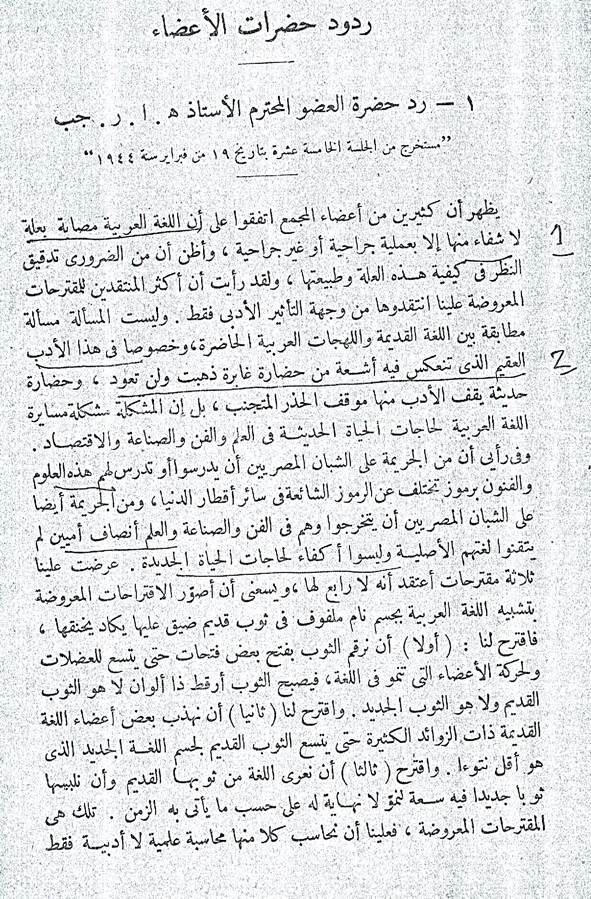 ردود حضرات الأعضاء
١ — رد حضرة العضو المحترم الأستاذ ه . ا . ر . جب
"مستخرج من الجلسة الخامسة عشرة بتاريخ ١٩ من فبراير سنة ١٩٤٤"
يظهر أن كثيرين من أعضاء المجمع اتفقوا على أن اللغة العربية مصابة بعلة
لا شفاء منها إلا بعملية جراحية أو غير جراحية ، وأظن أن من الضرورى تدقيق
1
النظر فى كيفية هذه العلة وطبيعتها ، ولقد رأيت أن أكثر المنتقدين للمقترحات
المعروضة علينا انتقدوها من وجهة التأثير الأدبى فقط . وليست المسألة مسألة
مطابقة بين اللغة القديمة واللهجات العربية الحاضرة، وخصوصا فى هذا الأدب
العقيم الذى تنعكس فيه أشعة من حضارة غابرة ذهبت ولن تعود ، وحضارة
2
حديثة يقف الأدب منها موقف الحذر المتجنب ، بل إن المشكلة مشكلة مسايرة
اللغة العربية لحاجات الحياة الحديثة فى العلم والفن والصناعة والاقتصاد .
وفى رأيى أن من الجريمة على الشبان المصريين أن يدرسوا أو تدرس لهم هذه العلوم
والفنون برموز تختلف عن الرموز الشائعة فى سائر أقطار الدنيا ، ومن الجريمة أيضا
على الشبان المصريين أن يتخرجوا وهم فى الفن والصناعة والعلم أنصاف أميين لم
يتقنوا لغتهم الأصلية وليسوا أكفاء لحاجات الحياة الجديدة . عرضت علينا
ثلاثة مقترحات أعتقد أنه لا رابع لها ، ويسعنى أن أصوّر الاقتراحات المعروضة
بتشبيه اللغة العربية بجسم نام ملفوف فى ثوب قديم ضيق عليها يكاد يخنقها ،
فاقترح لنا : ( أولا ) أن نرقم الثوب بفتح بعض فتحات حتى يتسع للعضلات
ولحركة الأعضاء التى تنمو فى اللغة، فيصبح الثوب أرقط ذا ألوان لا هو الثوب
القديم ولا هو الثوب الجديد . واقترح لنا ( ثانيا ) أن نهذب بعض أعضاء اللغة
القديمة ذات الزوائد الكثيرة حتى يتسع الثوب القديم لجسم اللغة الجديد الذى
هو أقل نتوءا . واقترح ( ثالثا ) أن نعرى اللغة من ثوبها القديم وأن نلبسها
ثوبا جديدا فيه سعة لنموّ لا نهاية له على حسب ما يأتى به الزمن . تلك هى
المقترحات المعروضة ، فعلينا أن نحاسب كلا منها محاسبة علمية لا أدبية فقط